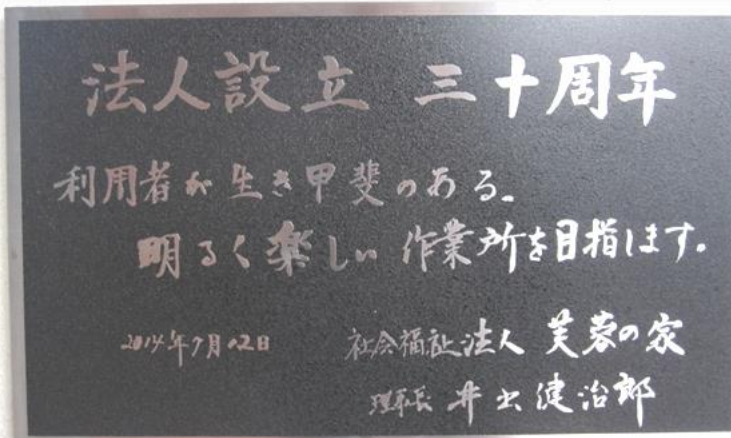 法人設立 三十周年
利用者が生き甲斐のある、
明るく楽しい作業所を目指します。
2014年7月12日
社会福祉法人 芙蓉の家
理事長 井出健治郎